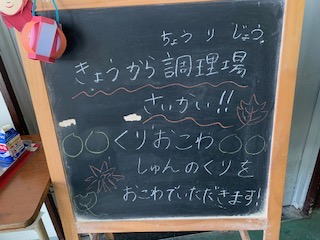 ちょうりじょう
きょうから調理場
さいかい!!
○○くりおこわ○○
しゅんのくりを
おこわでいただきます!